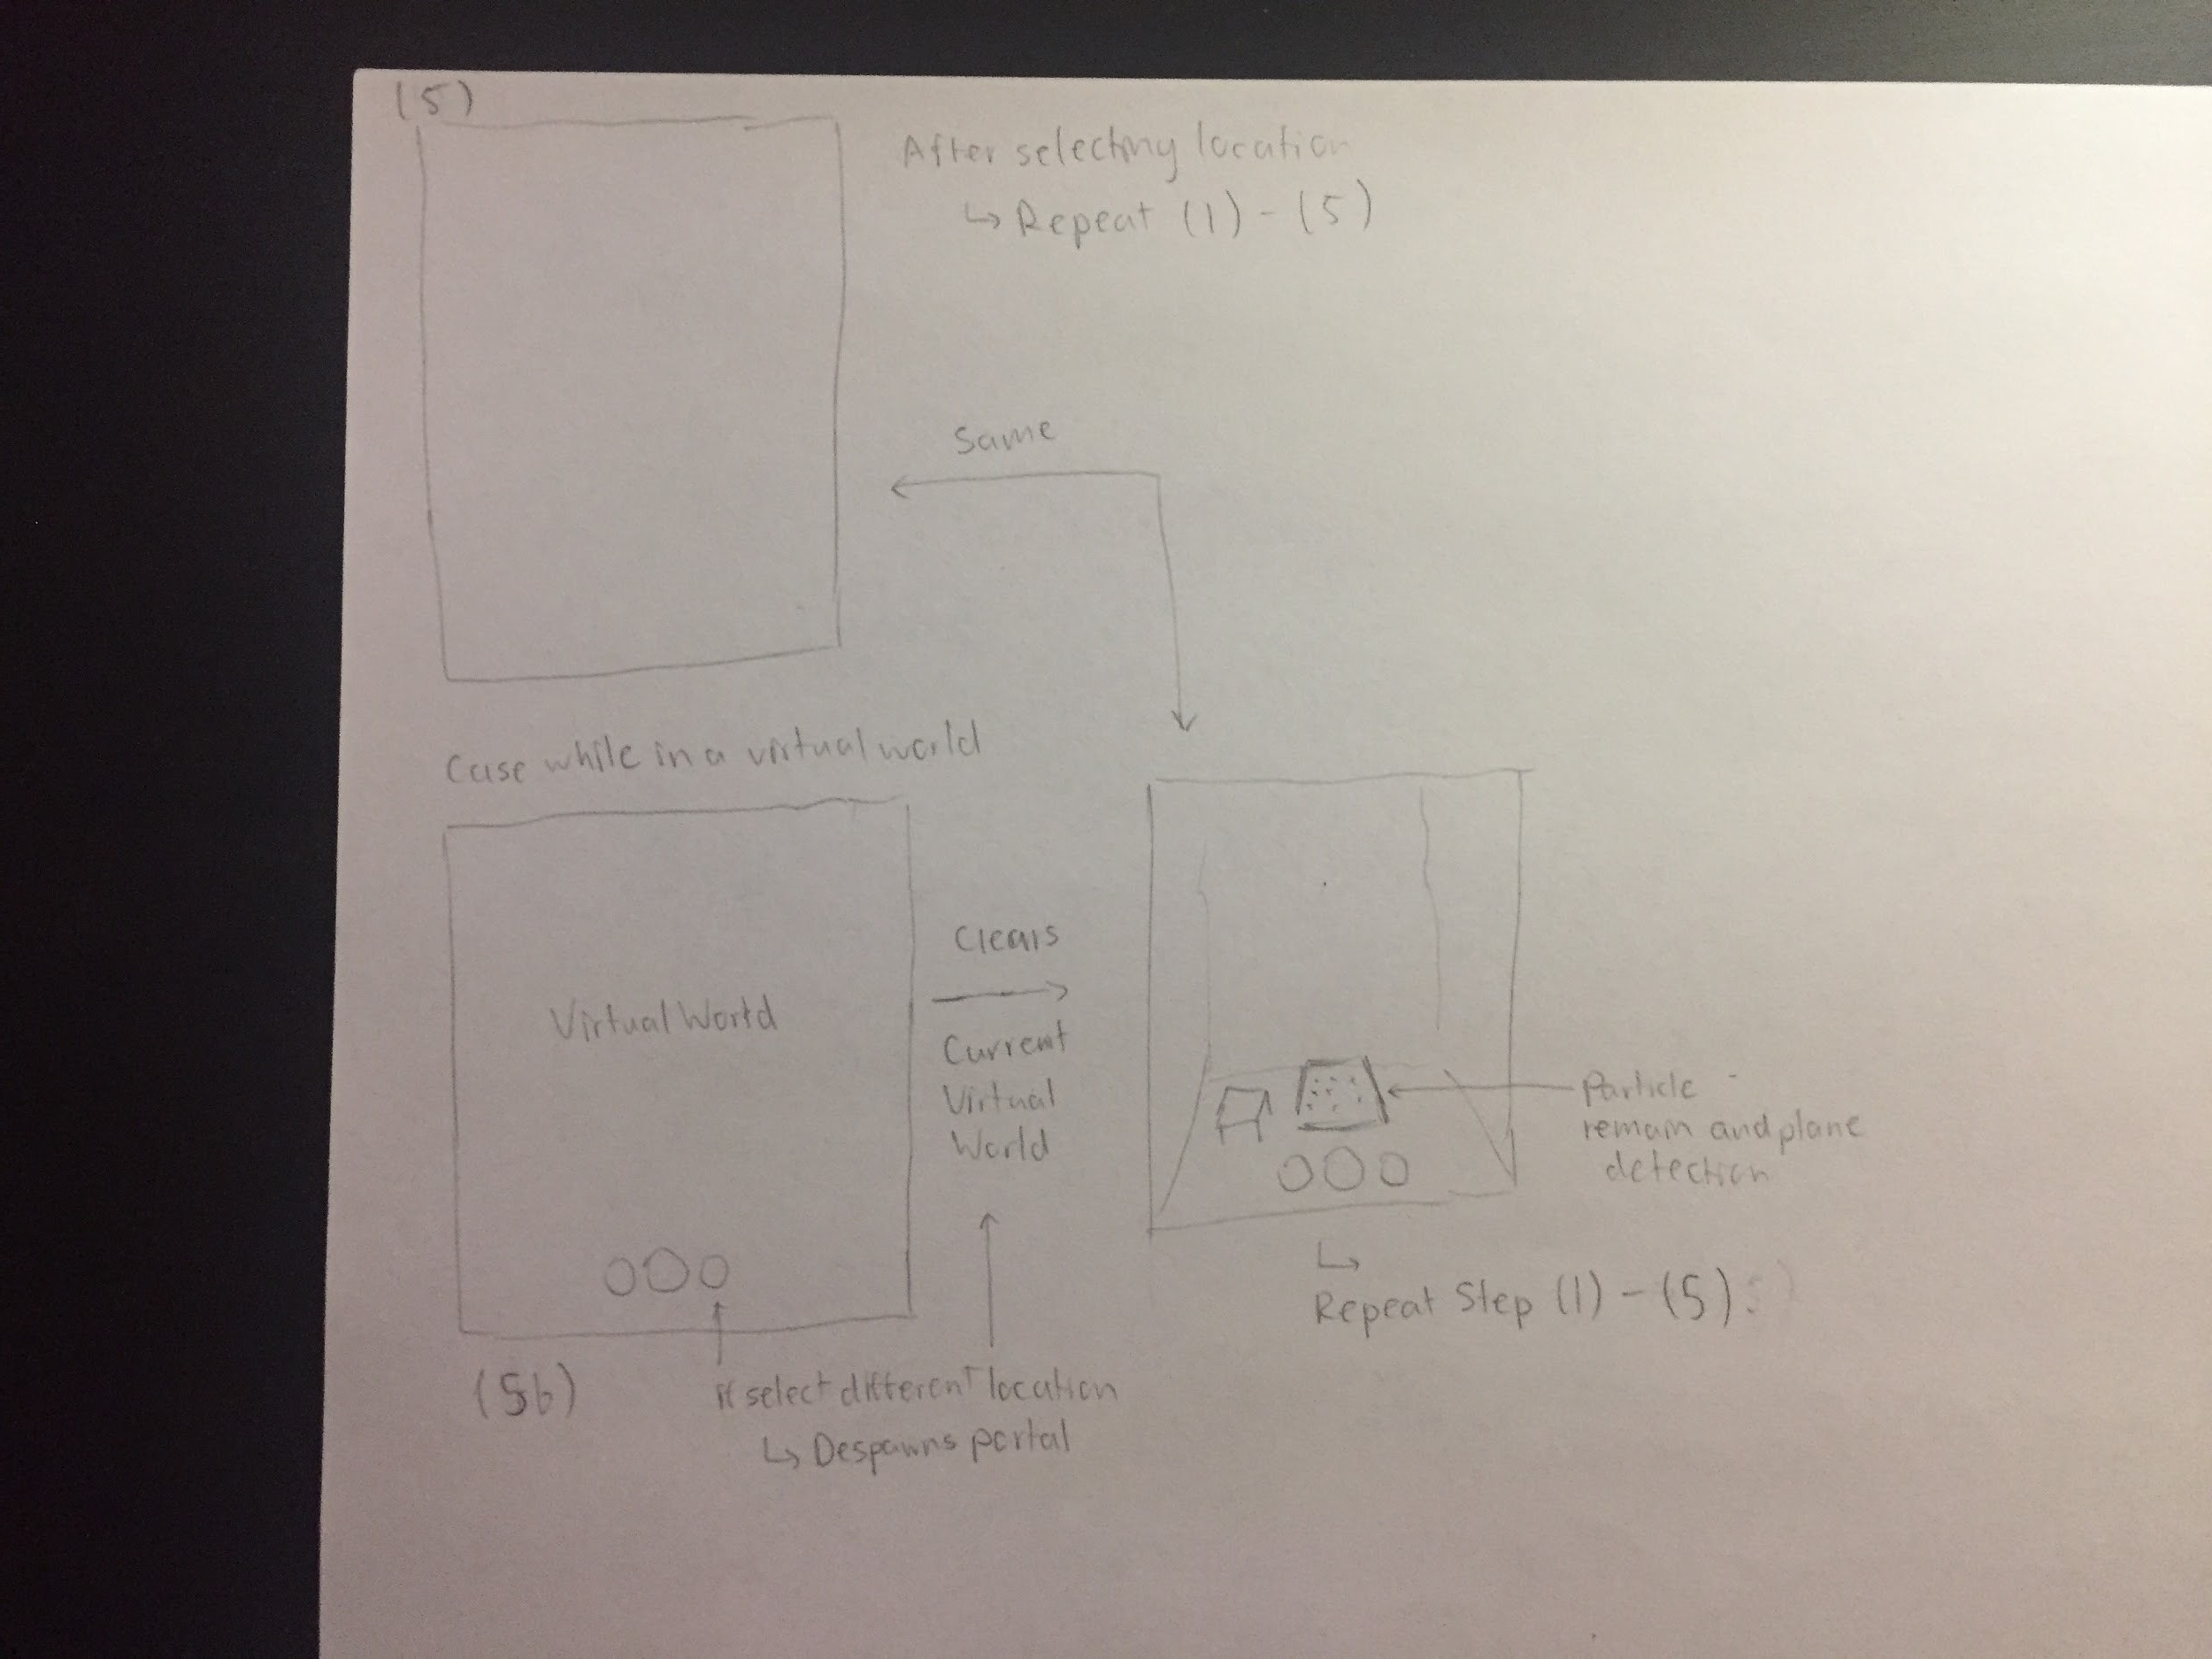 (5)
After selecting location
↳ Repeat (1) - (5)
Same
Case while in a virtual world
Virtual World
Clears
→
Current
Virtual
World
Particle
remain and plane
detection
↳
Repeat Step (1) - (5)
(5b)
if select different location
↳ Despawns portal